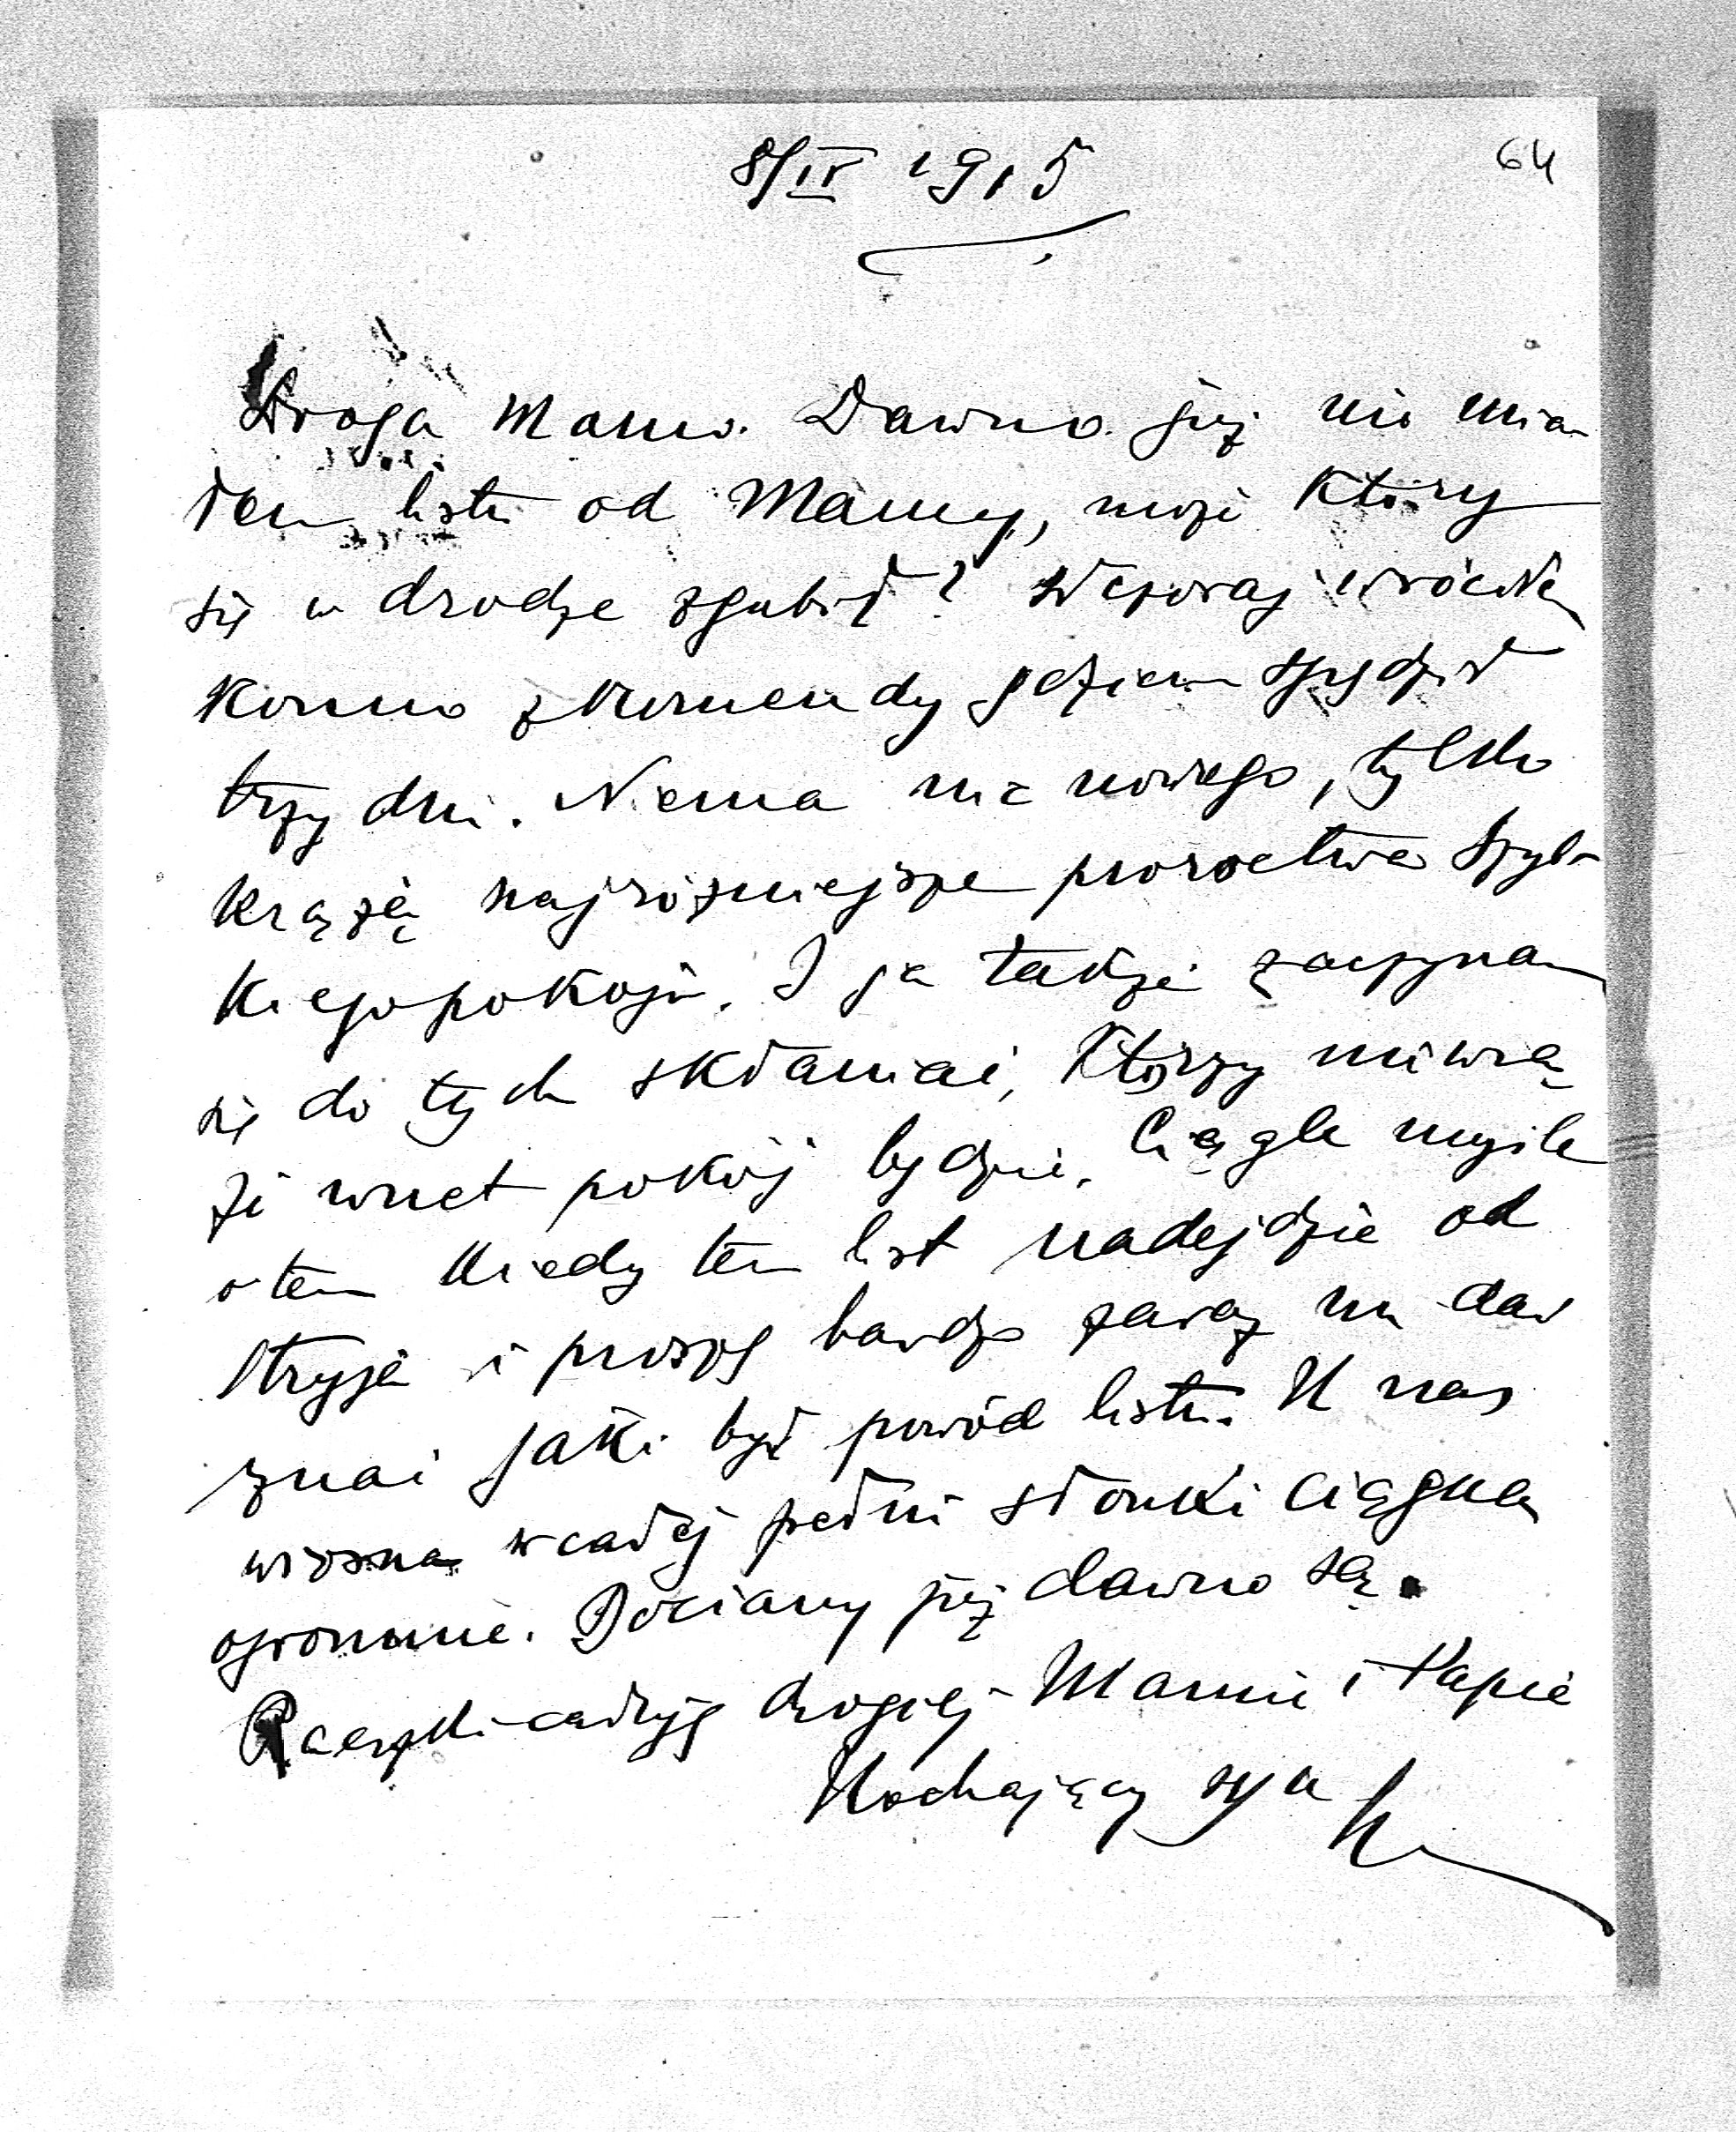 8/IV 1915
64
Droga Mamo. Dawno już nie mia
łem listu od Mamy, może który
się w drodze zgubił? Wczoraj wróciłem
konno z Komendy gdziem spędził
trzy dni. Niema nic nowego, tylko
krążą najróżniejsze proroctwa szyb-
kiego pokoju. I ja także zaczynam
się do tych skłaniać, którzy mówią
że wnet pokój będzie. Ciągle myślę
o tem kiedy ten list nadejdzie od
Stryja i proszę bardzo zaraz mi dać
znać jaki był powód listu. U nas
wiosna w całej pełni słonki ciągną
ogromnie. Bociany już dawno są.
Rączki całuję drogiej Mamie i Papie
Kochający syn